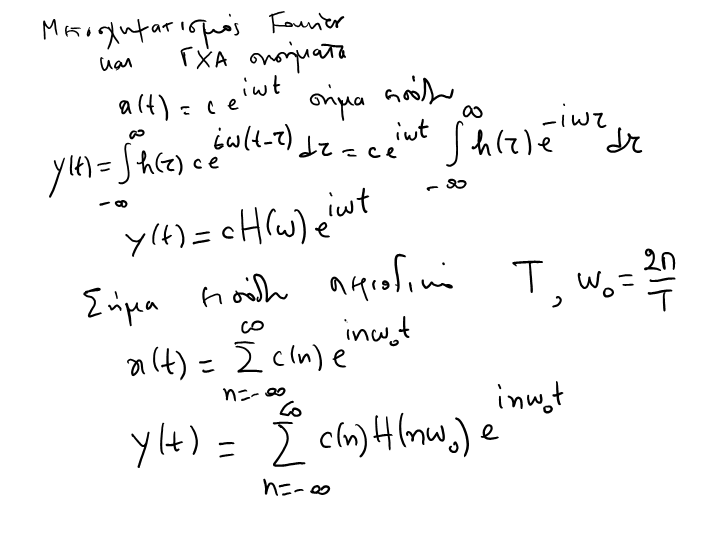 Μετασχηματισμός Fourier
και ΓΧΑ συστήματα
x(t) = c e^{iωt} σήμα εισόδου
y(t) = ∫_{-∞}^{∞} h(τ) c e^{iω(t-τ)} dτ = c e^{iωt} ∫_{-∞}^{∞} h(τ) e^{-iωτ} dτ
y(t) = c H(ω) e^{iωt}
Σήμα εισόδου περιοδικό T, ω₀ = 2π/T
x(t) = Σ_{n=-∞}^{∞} c(n) e^{inω₀t}
y(t) = Σ_{n=-∞}^{∞} c(n) H(nω₀) e^{inω₀t}